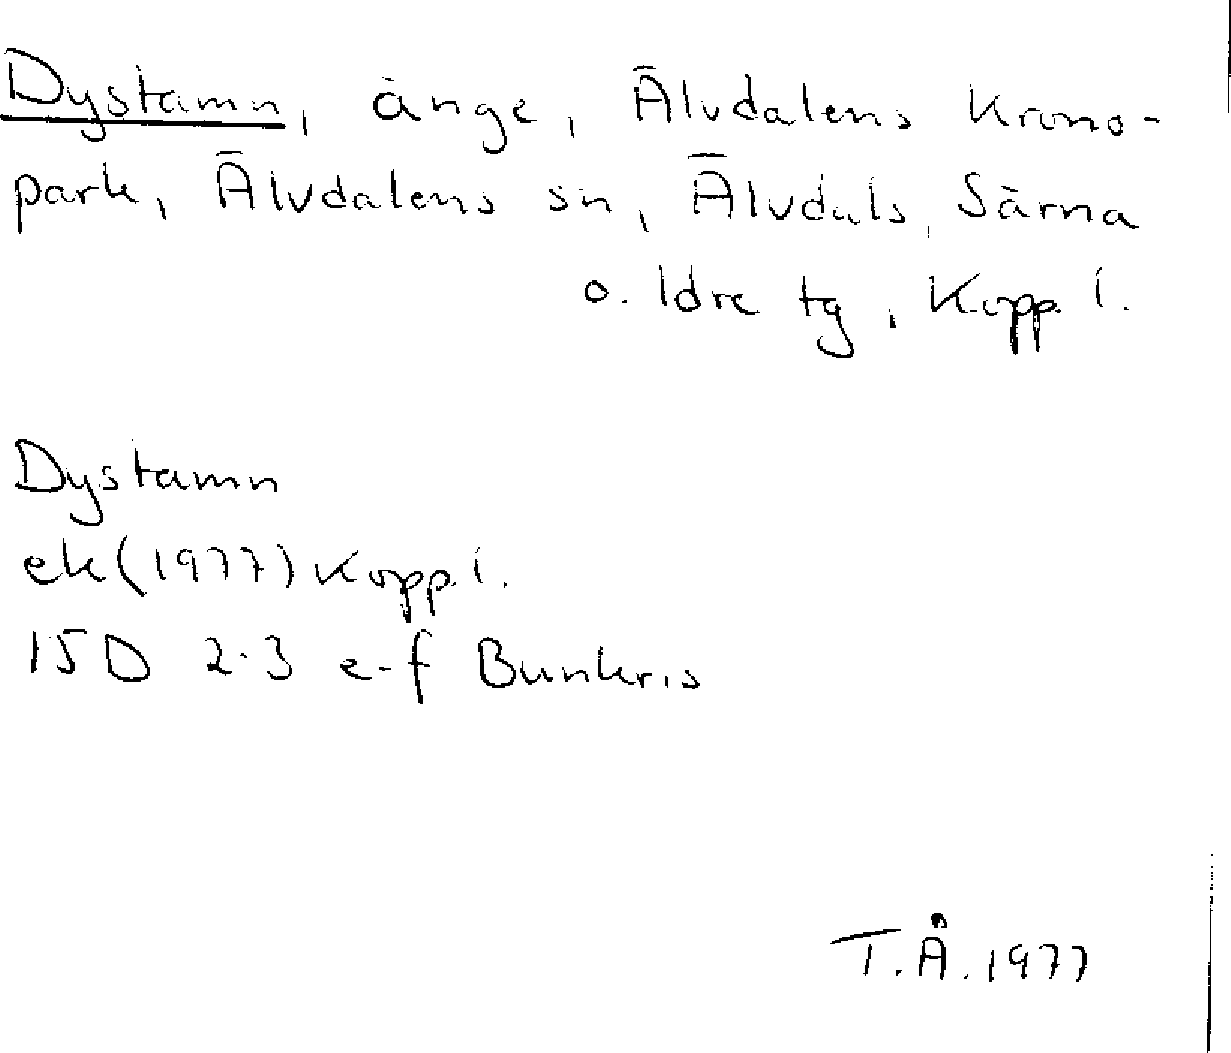 Dystamn, änge, Älvdalens Krono-
park, Älvdalens sn, Älvdals, Särna
o. Idre tg, Kopp. l.
Dystamn
ek (1977) Kopp. l.
15D 2-3 e-f Bunkris
T.Å. 1977